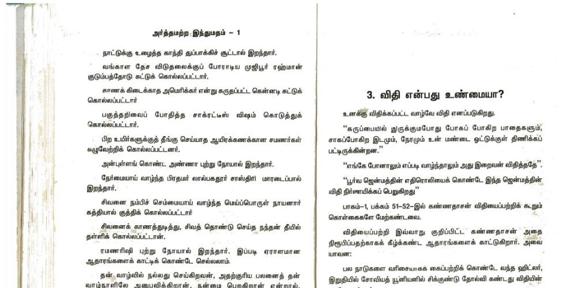 அர்த்தமற்ற இந்துமதம் - 1
நாட்டுக்கு உழைத்த காந்தி துப்பாக்கிச் சூட்டால் இறந்தார்.
வங்காள தேச விடுதலைக்குப் போராடிய முஜிபூர் ரஹ்மான்
குடும்பத்தோடு சுட்டுக் கொல்லப்பட்டார்.
சாணக் கிடைக்காத அமெரிக்கர் என்று கருதப்பட்ட கென்னடி சுட்டுக்
கொல்லப்பட்டார்
பகுத்தறிவைப் போதித்த சாக்ரட்டீஸ் விஷம் கொடுத்துக்
கொல்லப்பட்டார்.
பிற உயிர்களுக்குத் தீங்கு செய்யாத ஆயிரக்கணக்கான சமணர்கள்
கழுவேற்றிக் கொல்லப்பட்டனர்.
அன்புள்ளங் கொண்ட அண்ணா புற்று நோயால் இறந்தார்.
நேர்மையாய் வாழ்ந்த பிரதமர் லால்பகதூர் சாஸ்திரி மாரடைப்பால்
இறந்தார்.
சிவனை நம்பிச் செம்மையாய் வாழ்ந்த மெய்ப்பொருள் நாயனார்
கத்தியால் குத்திக் கொல்லப்பட்டார்
சிவனைக் காணத்துடித்து, சிவத் தொண்டு செய்த நந்தன் தீயில்
தள்ளிக் கொல்லப்பட்டான்.
ரமணரிஷி புற்று நோயால் இறந்தார். இப்படி ஏராளமான
ஆதாரங்களைக் காட்டிக் கொண்டே செல்லலாம்.
தன் வாழ்வில் நல்லது செய்கிறவன், அதற்குரிய பலனைத் தன்
வாழ்நாளிலே அனுபவிக்கிறான். நன்மை பெறுகிறான் என்றால்,
3. விதி என்பது உண்மையா?
உனக்கு விதிக்கப்பட்ட வாழ்வே விதி எனப்படுகிறது.
"கருப்பையில் துருக்குமபோது போகப் போகிற பாதைகளும்,
சாகப்போகிற இடமும், நேரமும் உன் மண்டை ஓட்டுக்குள் திணிக்கப்
பட்டிருக்கின்றன."
"எங்கே போனாலும் எப்படி வாழ்ந்தாலும் அது இறைவன் விதித்ததே".
"பூர்வ ஜென்மத்தின் எதிரொலியைக் கொண்டே இந்த ஜென்மத்தின்
விதி நிர்ணயிக்கப் பெறுகிறது"
பாகம்-1, பக்கம் 51-52-இல் கண்ணதாசன் விதியைப்பற்றி கூறும்
கொள்கைகளே மேற்கண்டவை.
விதியைப்பற்றி இவ்வாறு குறிப்பிட்ட கண்ணதாசன் அதை
நிரூபிப்பதற்காகக் கீழ்க்கண்ட ஆதாரங்களைக் காட்டுகிறார். அவை
யாவன:
பல நாடுகளை வரிசையாகக் கைப்பற்றிக் கொண்டே வந்த ஹிட்லர்,
இறுதியில் சோவியத் யூனியனில் சிக்குண்டு தோல்வி கண்டது விதியின்